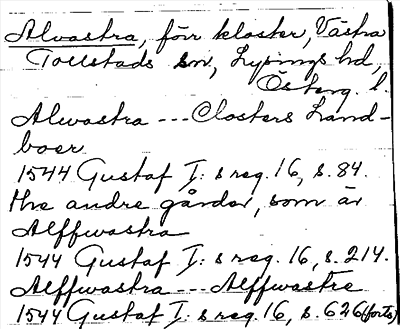 Alvastra, förr kloster, Västra
Tollstads sn, Lysings hd,
Österg. l.
Alwastra --- Closters Land-
boer
1544 Gustaf I:s reg. 16, s. 84.
thre andre gårdar, som är
Alffwastra
1544 Gustaf I:s reg. 16, s. 214.
Alffwastra --- Alffwastre
1544 Gustaf I:s reg. 16, s. 626 (forts)